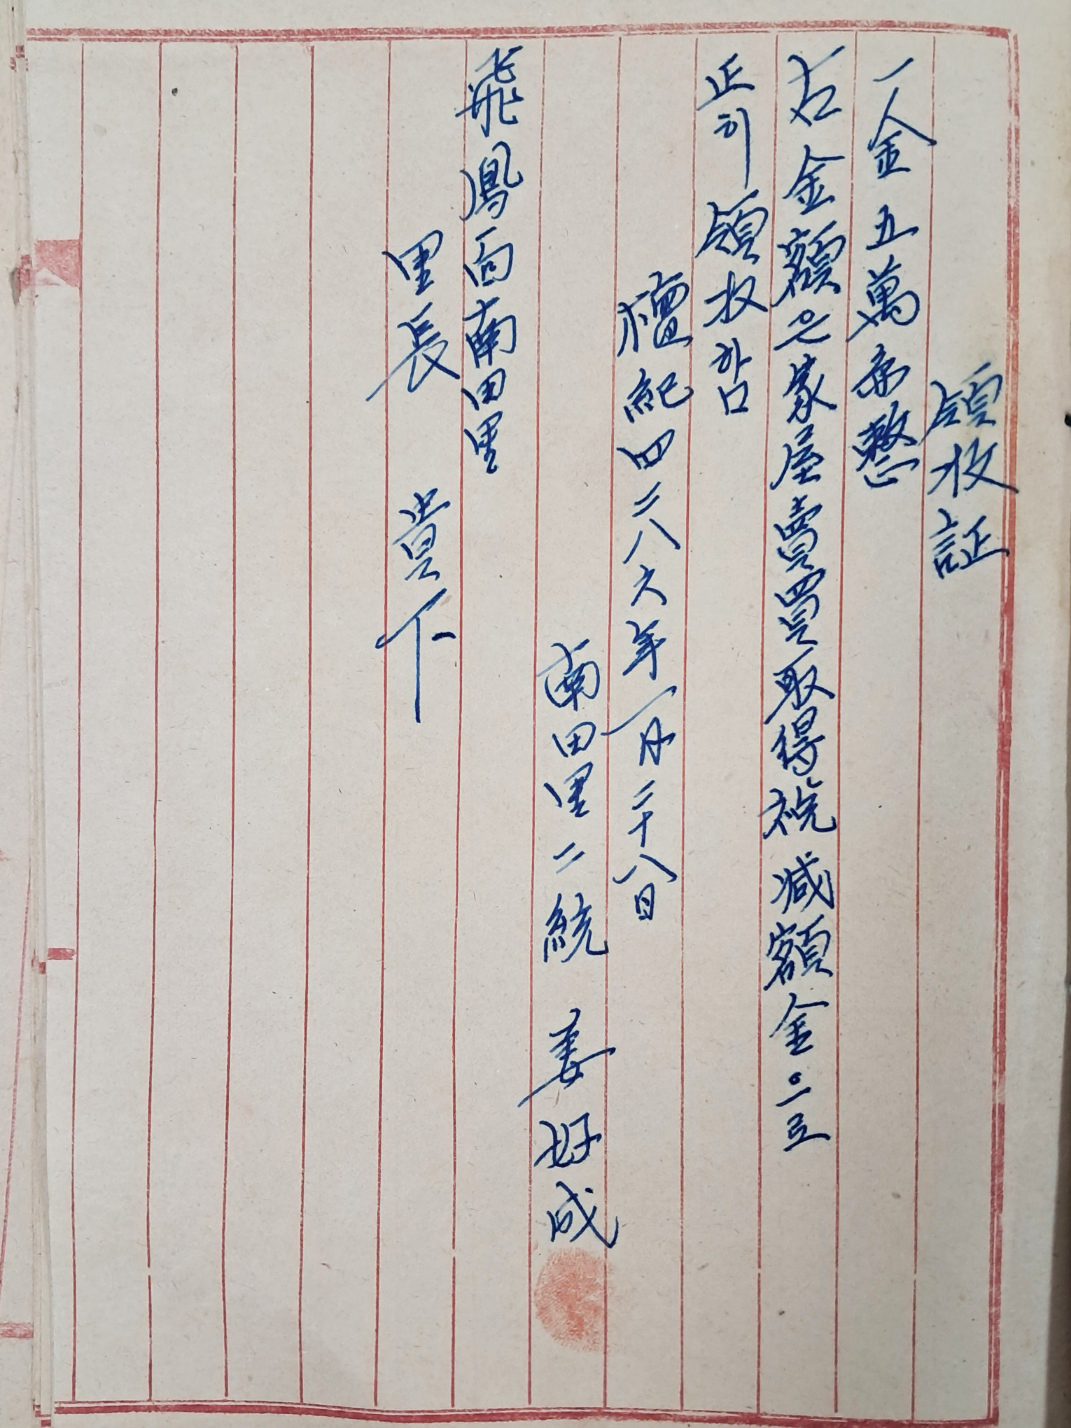 領收証
一金五萬원整
右金額은家屋賣買取得稅減額金으로
正히領收함
檀紀四二八六年一月二十八日
南田里二統 姜好成
飛鳳面南田里
里長 貴下